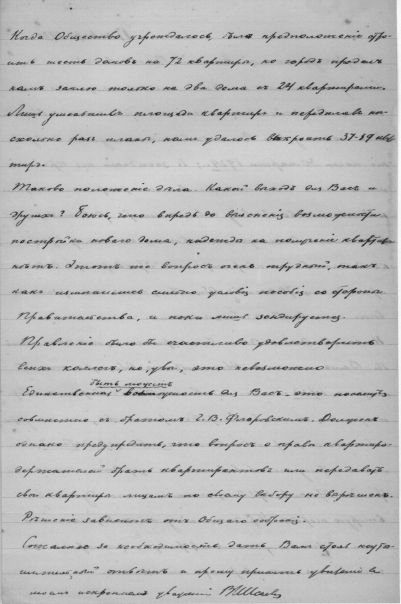 Когда Общество учреждалось, было предположеніе стро-
ить шесть домовъ на 72 квартиры, но городъ продалъ
намъ землю только на два дома съ 24 квартирами.
Лишь уменьшивъ площади квартиръ и передѣлавъ нѣ-
сколько разъ планы, намъ удалось выкроить 37-39 квар-
тиръ.
Таково положеніе дѣла. Какой выходъ для Васъ и
другихъ? Боюсь, что впредь до выясненія возможности
постройки новаго дома, надежды на полученіе квартиры
нѣтъ. Этотъ же вопросъ очень трудный, такъ
какъ измѣнились условія пособія со стороны
Правительства, и пока лишь зондируется.
Правленіе было бы счастливо удовлетворить
всѣхъ коллегъ, но, увы, это невозможно
быть можетъ
Единственная возможность для Васъ - это
совмѣстно съ братомъ Г.В. Флоровскимъ. Долженъ
однако предупредить, что вопросъ о правѣ квартиро-
держателей брать квартирантовъ или передавать
свои квартиры лицамъ по своему выбору не разрѣшенъ.
Рѣшеніе зависитъ отъ Общаго собранія.
Сожалѣю за необходимость дать Вамъ столь неутѣ-
шительный отвѣтъ и прошу принять увѣреніе въ
моемъ искреннемъ уваженіи